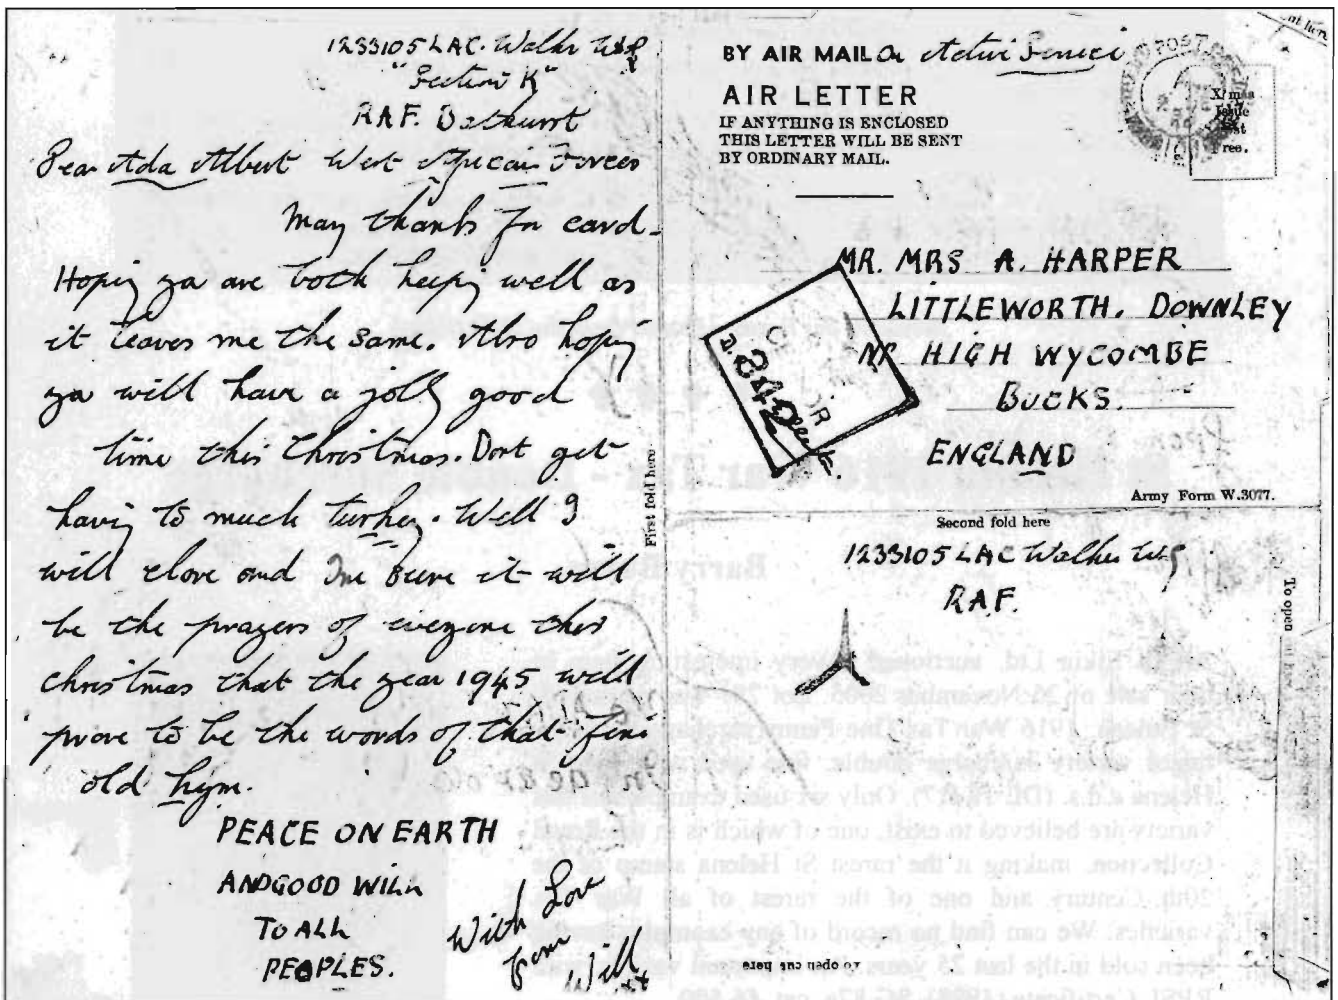 1233105 LAC. Walker W.S.R
"Section K"
RAF. Bathurst
West African Forces
Dear Ada Albert
Many thanks for card.
Hoping ya are both keeping well as
it leaves me the same. Also hoping
ya will have a jolly good
time this Christmas. Dont get
having to much turkey. Well I
will close and Im sure it will
be the prayers of everyone this
christmas that the year 1945 will
prove to be the words of that fine
old hym.
PEACE ON EARTH
AND GOOD WILL
TO ALL
PEOPLES.
With Love
from
Will
First fold here
BY AIR MAIL On Active Service
AIR LETTER
IF ANYTHING IS ENCLOSED
THIS LETTER WILL BE SENT
BY ORDINARY MAIL.
Xmas
Issue
Post
Free.
MR. MRS A. HARPER
LITTLEWORTH. DOWNLEY
NR HIGH WYCOMBE
BUCKS.
ENGLAND
CENSOR
Army Form W.3077.
Second fold here
1233105 LAC Walker W.S
RAF.
To open
To open cut here